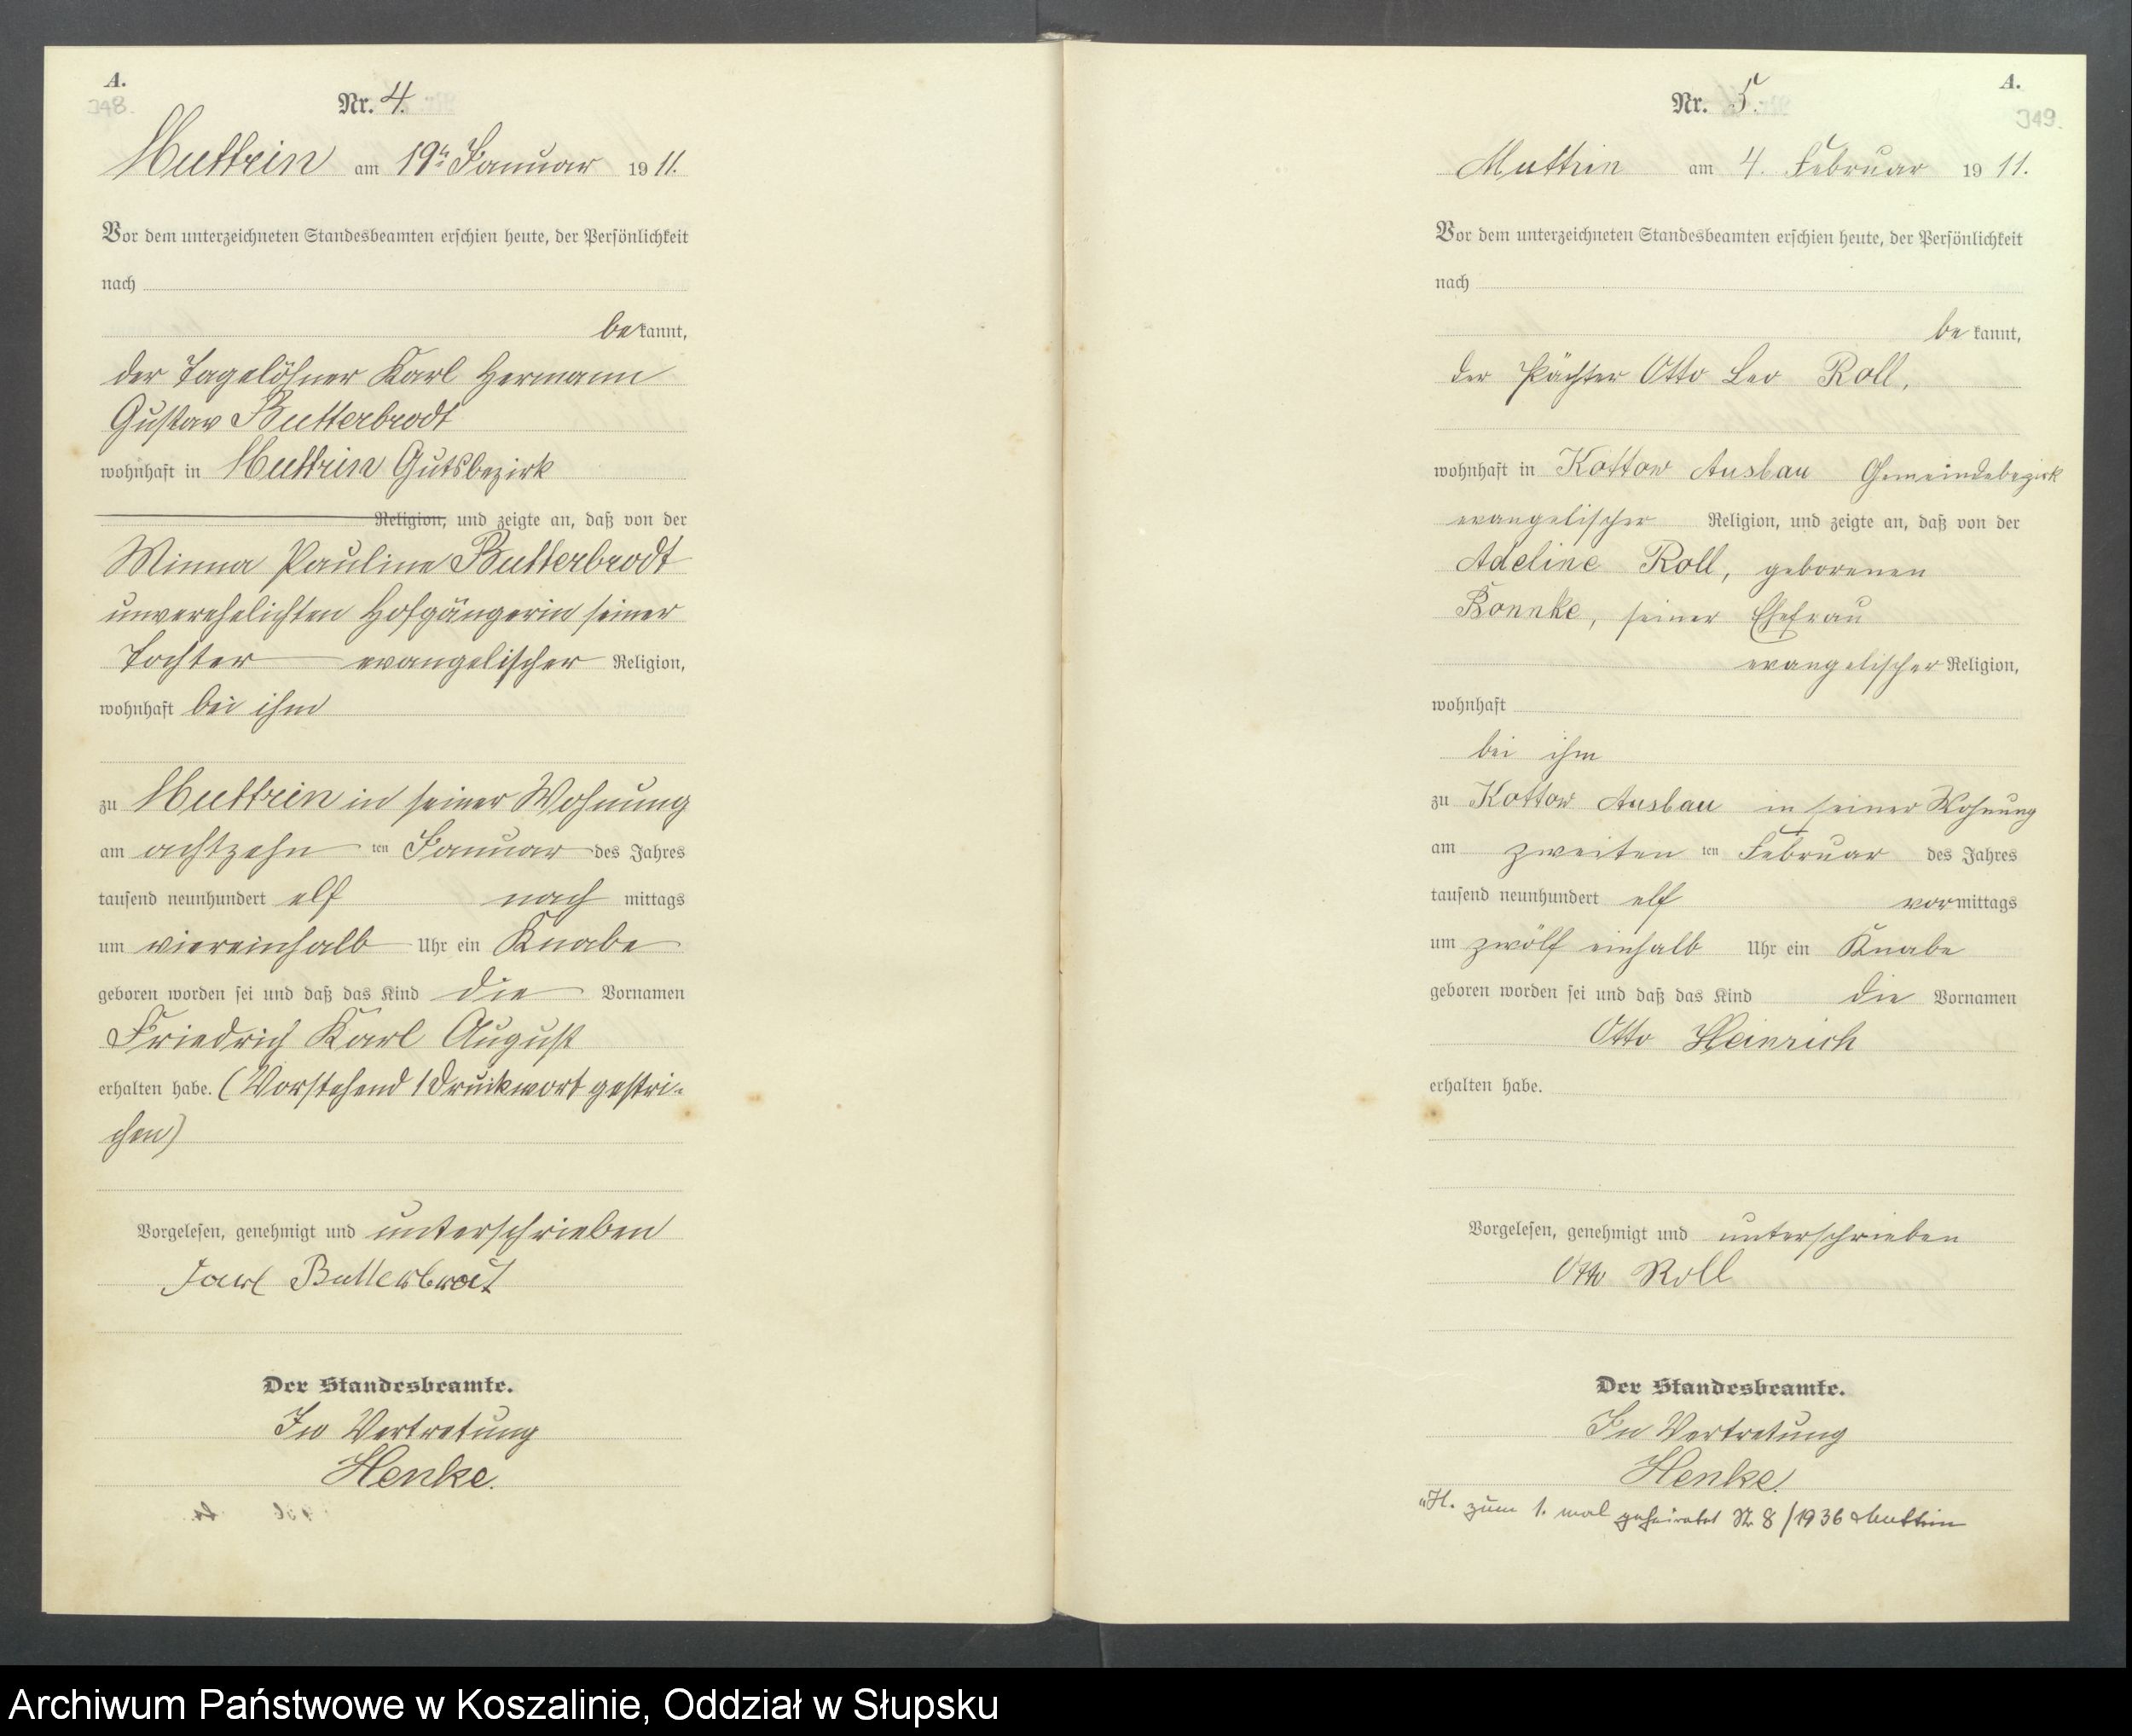 A.
348.
Nr. 4.
Muttrin am 19ten Januar 1911.
Vor dem unterzeichneten Standesbeamten erschien heute, der Persönlichkeit
nach
bekannt,
der Tagelöhner Karl Hermann
Gustav Butterbrodt
wohnhaft in Muttrin Gutsbezirk
Religion, und zeigte an, daß von der
Minna Pauline Butterbrodt
unverehelichten Hofgängerin seiner
Tochter evangelischer Religion,
wohnhaft bei ihm
zu Muttrin in seiner Wohnung
am achtzehn ten Januar des Jahres
tausend neunhundert elf nachmittags
um viereinhalb Uhr ein Knabe
geboren worden sei und daß das Kind die Vornamen
Friedrich Karl August
erhalten habe. (Vorstehend 1 Druckwort gestri-
chen)
Vorgelesen, genehmigt und unterschrieben
Karl Butterbrodt
Der Standesbeamte.
In Vertretung
Henke.
A.
349.
Nr. 5.
Muttrin am 4. Februar 1911.
Vor dem unterzeichneten Standesbeamten erschien heute, der Persönlichkeit
nach
bekannt,
der Pächter Otto Leo Roll,
wohnhaft in Kottow Ausbau Gemeindebezirk
evangelischer Religion, und zeigte an, daß von der
Adeline Roll, geborenen
Bonnke, seiner Ehefrau
evangelischer Religion,
wohnhaft
bei ihm
zu Kottow Ausbau in seiner Wohnung
am zweiten ten Februar des Jahres
tausend neunhundert elf vormittags
um zwölf einhalb Uhr ein Knabe
geboren worden sei und daß das Kind die Vornamen
Otto Heinrich
erhalten habe.
Vorgelesen, genehmigt und unterschrieben
Otto Roll
Der Standesbeamte.
In Vertretung
Henke.
"H. zum 1. mal geheiratet Nr 8/1936 Muttrin
Archiwum Państwowe w Koszalinie, Oddział w Słupsku